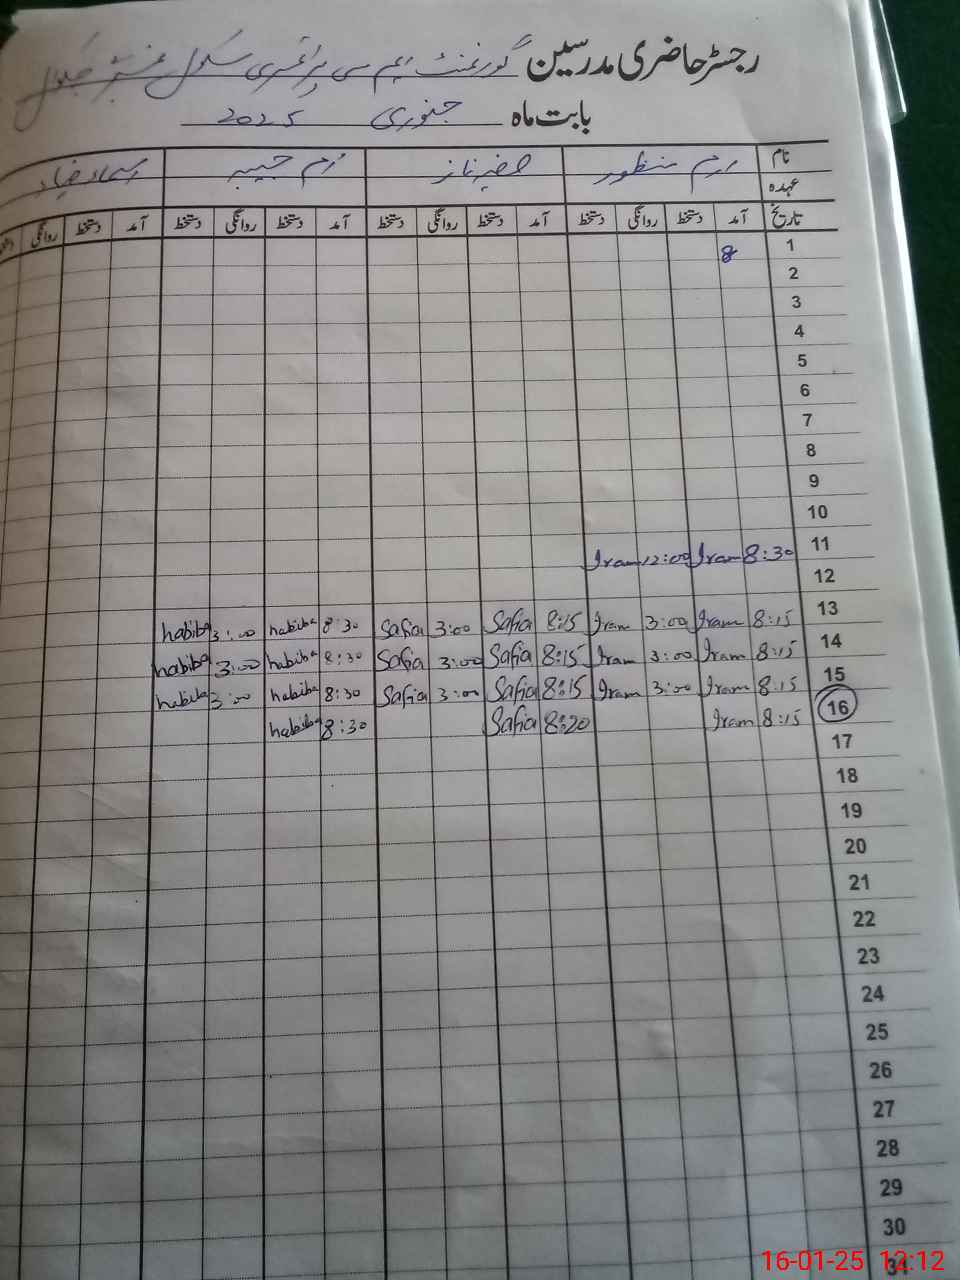 رجسٹر حاضری مدرسین گورنمنٹ ایم سی پرائمری سکول
بابت ماہ جنوری 2025
نام ارم منظور صفیہ ناز ام حبیبہ
عہدہ
تاریخ آمد دستخط روانگی دستخط آمد دستخط روانگی دستخط آمد دستخط روانگی دستخط آمد دستخط روانگی
1 8
2
3
4
5
6
7
8
9
10
11 8:30 Iram 12:00 Iram
12
13 8:15 Iram 3:00 Iram 8:15 Safia 3:00 Safia 8:30 habiba 3:00 habiba
14 8:15 Iram 3:00 Iram 8:15 Safia 3:00 Safia 8:30 habiba 3:00 habiba
15 8:15 Iram 3:00 Iram 8:15 Safia 3:00 Safia 8:30 habiba 3:00 habiba
16 8:15 Iram 8:20 Safia 8:30 habiba
17
18
19
20
21
22
23
24
25
26
27
28
29
30
31
16-01-25 12:12